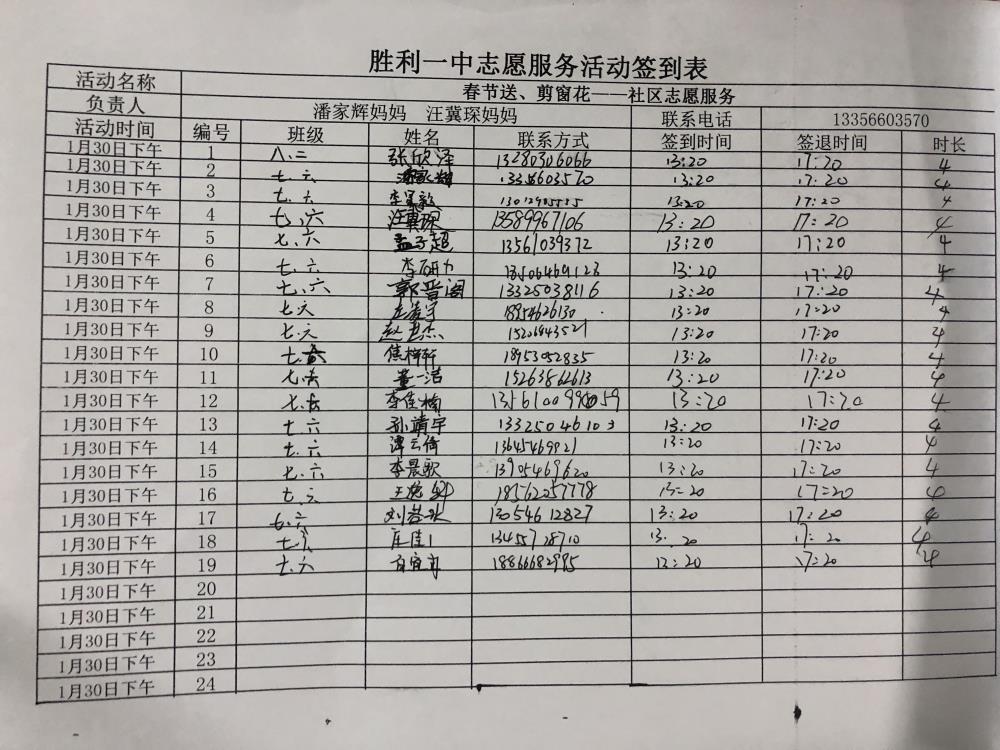 胜利一中志愿服务活动签到表
活动名称 春节送、剪窗花——社区志愿服务
负责人 潘家辉妈妈 汪冀琛妈妈 联系电话 13356603570
活动时间 编号 班级 姓名 联系方式 签到时间 签退时间 时长
1月30日下午 1 八.二 张欣泽 13280306066 13:20 17:20 4
1月30日下午 2 七.六 13356603570 13:20 17:20 4
1月30日下午 3 七.六 13:20 17:20 4
1月30日下午 4 七.六 汪冀琛 13589967106 13:20 17:20 4
1月30日下午 5 七.六 孟子超 13561039372 13:20 17:20 4
1月30日下午 6 七.六 13506469123 13:20 17:20 4
1月30日下午 7 七.六 郭晋阁 13325038116 13:20 17:20 4
1月30日下午 8 七.六 18954626130 13:20 17:20 4
1月30日下午 9 七.六 13:20 17:20 4
1月30日下午 10 18953052835 13:20 17:20 4
1月30日下午 11 七.六 董一洁 15263862613 13:20 17:20 4
1月30日下午 12 七.六 李佳楠 13:20 17:20 4
1月30日下午 13 七.六 孙靖宇 13325046103 13:20 17:20 4
1月30日下午 14 七.六 谭云倚 13645469921 13:20 17:20 4
1月30日下午 15 七.六 李晨歌 13905469620 13:20 17:20 4
1月30日下午 16 七.六 18562057778 13:20 17:20 4
1月30日下午 17 13054612827 13:20 17:20 4
1月30日下午 18 七.六 13455728710 13:20 17:20 4
1月30日下午 19 七.六 18866682995 13:20 17:20 4
1月30日下午 20
1月30日下午 21
1月30日下午 22
1月30日下午 23
1月30日下午 24